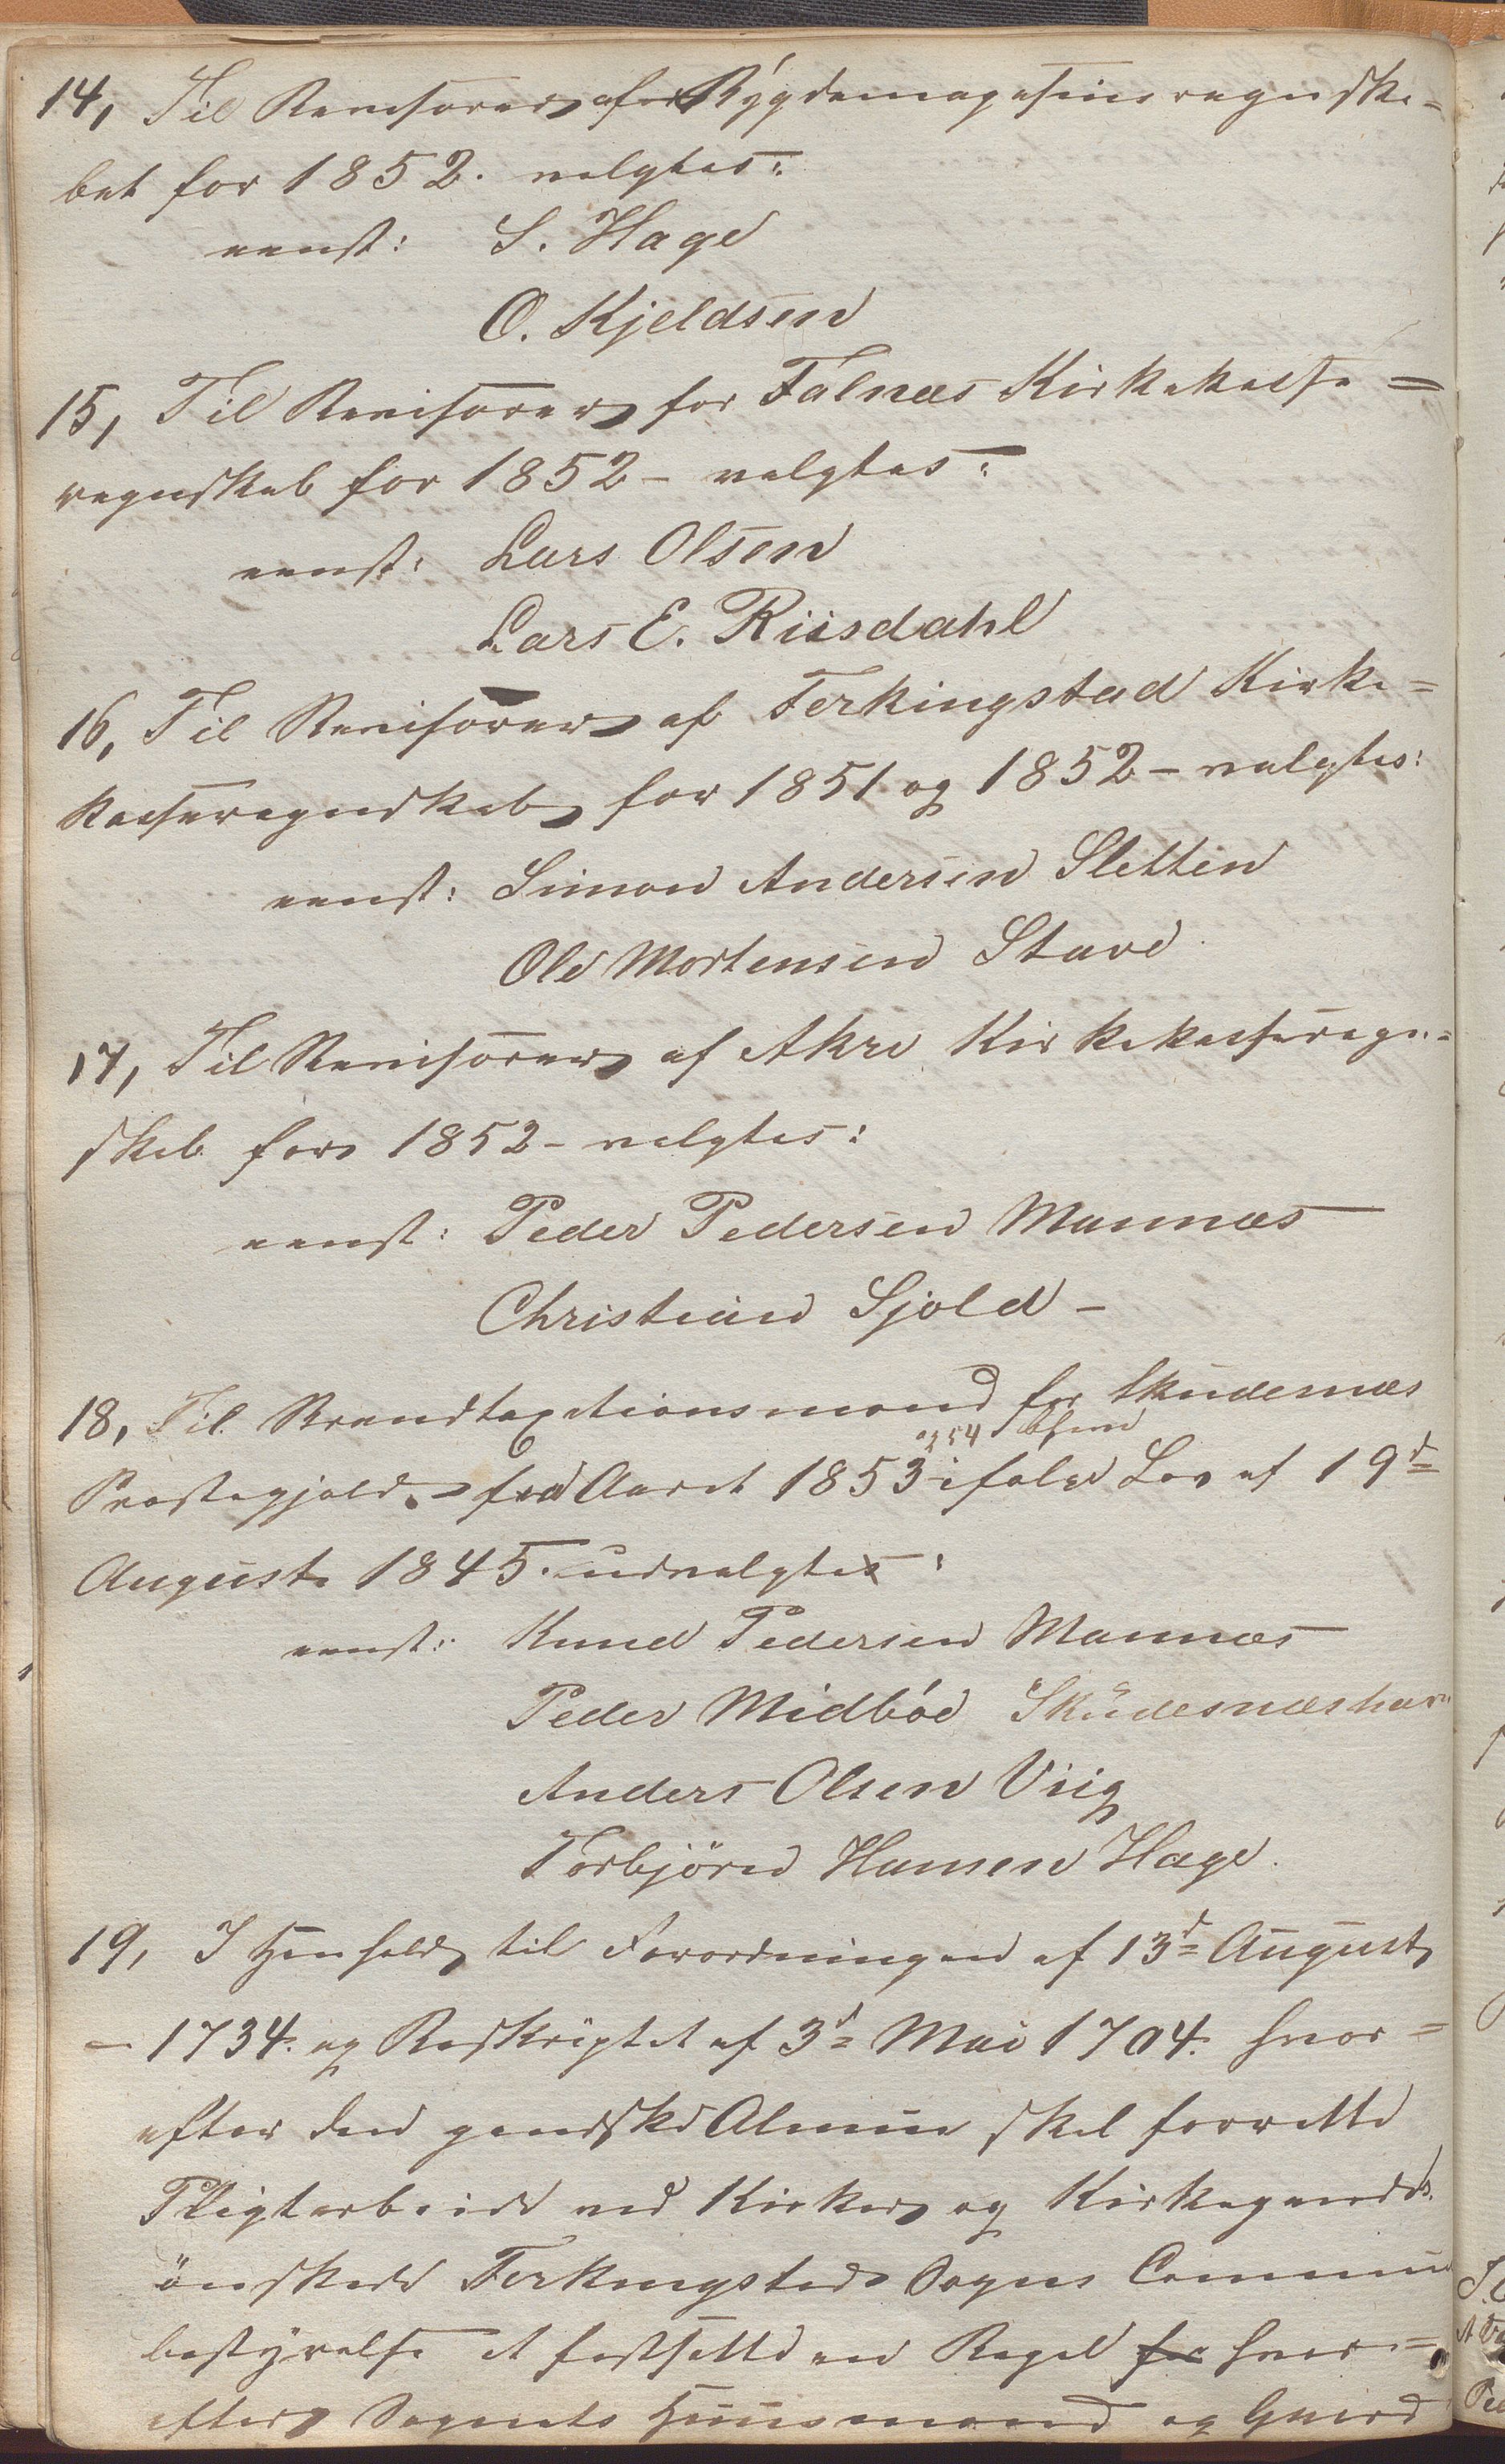 14, Til Revisorer af Bygdemagasinregnska=
bet for 1852. valgtes:
eenst: S. Hage
O. Kjeldsen
15, Til Revisorer for Falnæs Kirkekasse=
regnskab for 1852 - valgtes:
eenst: Lars Olsen
Lars E. Riisdahl
16, Til Revisorer af Ferkingstad Kirke=
kasseregnskab for 1851 og 1852 - valgtes:
eenst: Simon Andersen Sletten
Ole Mortensen Stave
17, Til Revisorer af Akre Kirkekasseregn=
skab for 1852 - valgtes:
eenst: Peder Pedersen Mannæs
Christian Sjold -
18, Til Brandtaxationsmænd for Skudesnæs
og 54
Præstegjeld for Aaret 1853 ifølge Lov af 19d=
August 1845. udvalgtes:
eenst: Knud Pedersen Mannæs
Peder Midböe Skudesnæshavn
Anders Olsen Viig
Torbjörn Hansen Hage.
19, I Henhold til Forordningen af 13d= August
- 1734. og Reskriptet af 3d= Mai 1704. hvor=
efter den gandske Almue skal forrette
Pligtarbeide ved Kirker og Kirkegaarde.
önskede Ferkingstad Sogns Commune
bestyrelse at fastsætte en Regel for hvor=
efter Sognets Huusmænd og Gaard